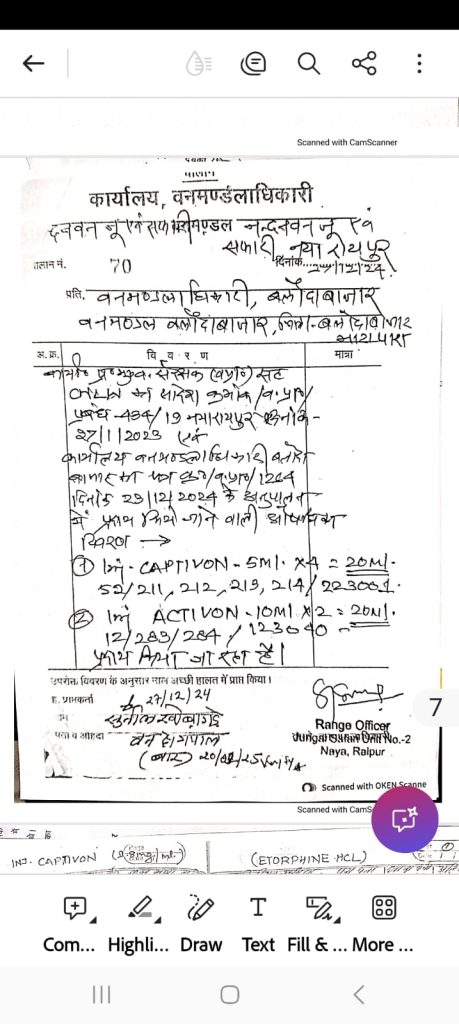 Scanned with CamScanner
चालान
कार्यालय, वनमण्डलाधिकारी
जू एवं सफारी मण्डल नन्दनवन जू एवं
सफारी नया रायपुर
चालान नं. 70 दिनांक 27/12/24
प्रति, वनमण्डलाधिकारी, बलौदाबाजार
वनमण्डल बलौदाबाजार, जिला-बलौदाबाजार
भाटापारा
अ.क्र. विवरण मात्रा
कार्या. प्र.मुख्य संरक्षक (वप्रा) सह
का आदेश क्रमांक/व.प्रा/
प्रबंध-434/19 नवारायपुर दिनांक-
27/1/2023 एवं
कार्यालय वनमण्डलाधिकारी
का पत्र क्र/व.प्रा/1264
दिनांक 23/12/2024 के अनुपालन
में प्रदाय किये जाने वाली
विवरण →
① Inj. CAPTIVON - 5ml. x 4 = 20ml.
52/211, 212, 213, 214/ 223001.
② Inj ACTIVON - 10ml. x 2 = 20ml.
12/283/284 / 123040
प्रदाय किया जा रहा है।
उपरोक्त विवरण के अनुसार माल अच्छी हालत में प्राप्त किया।
27/12/24
ह. प्राप्तकर्ता
नाम सुनील खोब्रागडे
पता व ओहदा वनक्षेत्रपाल
Range Officer
Jungal Safari Unit No.-2
Naya, Raipur
7
Scanned with OKEN Scanne
Scanned with CamS
INJ. CAPTIVON (ETORPHINE HCL)
Com... Highli... Draw Text Fill & ... More ...